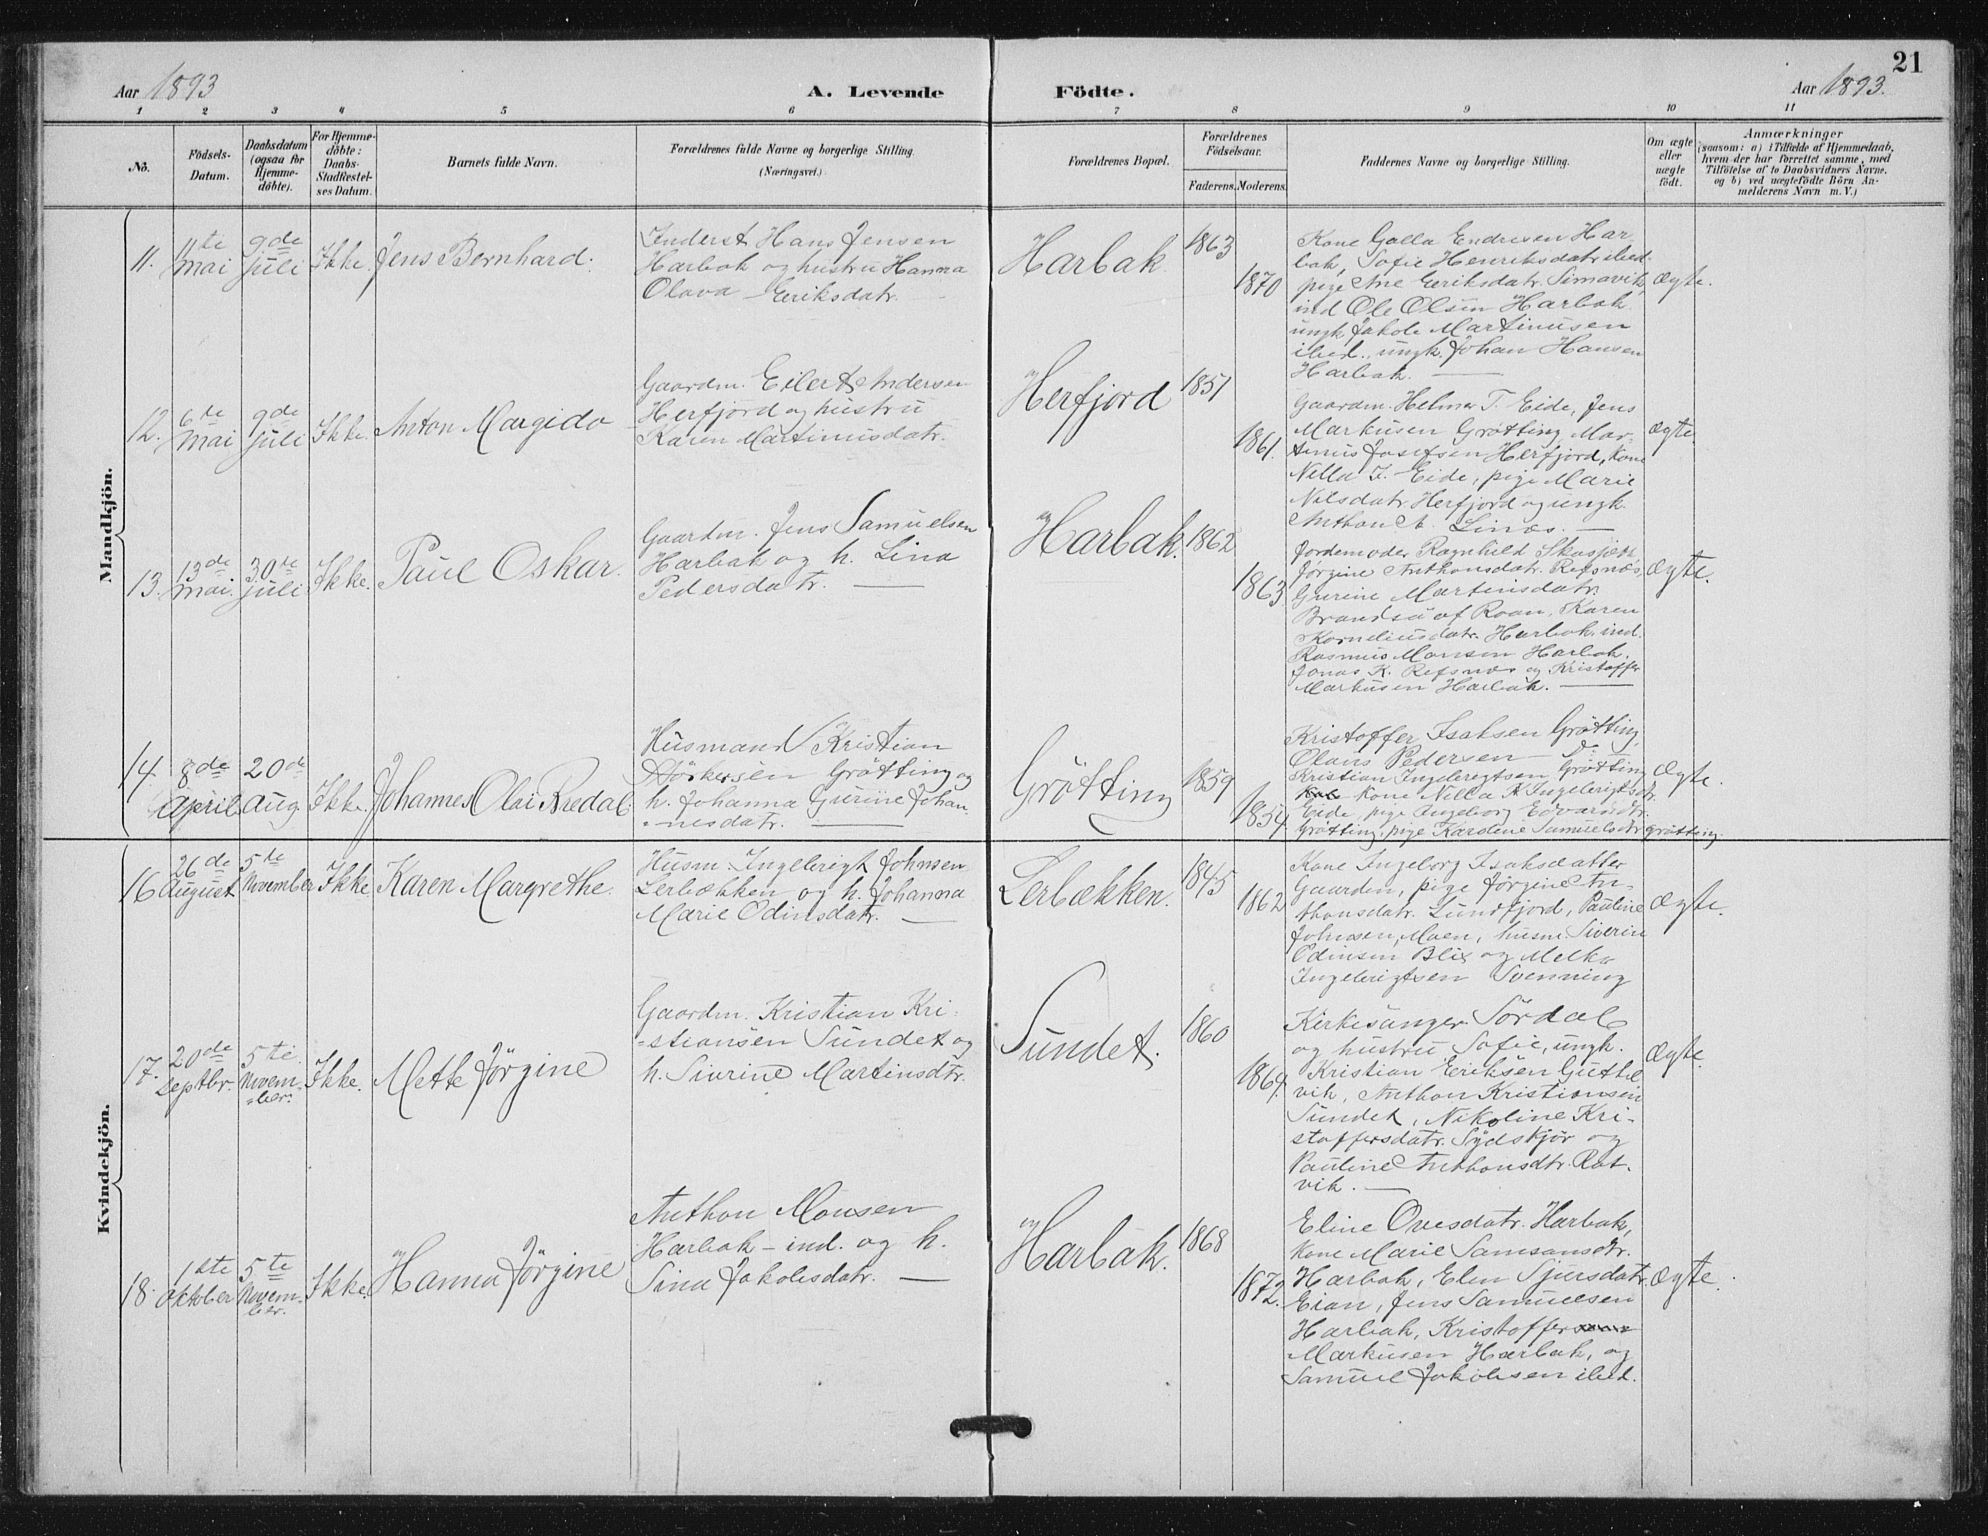 21
Aar 1893
A. Levende
Födte.
Aar 1893.
1 2 3 4 5 6 7 8 9 10 11
No.
Födsels-
Datum.
Daabsdatum
(ogsaa för
Hjemme-
döbte).
For Hjemme-
döbte:
Daabs-
Stadfæstel-
ses Datum.
Barnets fulde Navn.
Forældrenes fulde Navne og borgerlige Stilling.
(Næringsvei.)
Forældrenes Bopæl.
Forældrenes
Födselsaar.
Faderens. Moderens.
Faddernes Navne og borgerlige Stilling.
Om ægte
eller
uægte
födt.
Anmærkninger
(saasom: a) i Tilfælde af Hjemmedaab,
hvem der har forrettet samme, med
Tilföielse af to Daabsvidners Navne,
og b) ved uægtefödte Börn An-
melderens Navn m. V.)
Mandkjön.
11.
11te
Mai
9de
Juli
Ikke.
Jens Bernhard.
Inderst Hans Jensen
Harbak og hustru Hanna
Olava Eeriksdatr.
Harbak
1863
1870
Kone Golla Endresen Har
bak, Sofie Henriksdatr ibid.
pige Ane Eeriksdatr. Simavik,
ind Ole Olsen Harbak
ungk Jakob Martinusen
ibid., ungk. Johan Hansen
Harbak.
Ægte.
12.
6te
Mai
9de
Juli
Ikke.
Anton Margido
Gaardm. Eilert Andersen
Herfjord og hustru
Karen Martinusdatr.
Herfjord
1851
1861.
Gaardm. Helmer T. Eide, Jens
Markusen Grötting, Mar-
tinus Josefsen Herfjord, Kone
Nella I. Eide, pige Marie
Nilsdatr. Herfjord og ungk.
Anthon A. Linæs.
Ægte.
13.
13de
Mai.
30te
Juli
Ikke.
Paul Oskar.
Gaardm. Jens Samuelsen
Harbak og h. Lina
Pedersdatr.
Harbak.
1862
1863
Jordemoder Ragnhild
Jörgine Anthonsdatr. Refsnæs,
Gurine Martinsdatr.
af Roan, Karen
Korneliusdatr. Harbak, ind.
Rasmus Monsen Harbak,
Jonas K. Refsnæs og Kristoffer
Markusen Harbak.
Ægte.
14.
8de
April
20de
Aug.
Ikke.
Johannes Olai Bredal.
Husmand Kristian
Störkersen Grötting og
h. Johanna Gurine Johan
=nesdatr.
Grötting
1859
1854.
Kristoffer Isaksen Grötting,
Olaus Pedersen
Kristian Ingebrigtsen Grötting
Kone Nella K. Ingebrigtsdr.
Eide, pige Ingeborg Edvardsdtr.
Grötting, pige Karoline Samuelsdtr Grötting.
Ægte.
Kvindekjön.
16
26de
August
5te
November
Ikke
Karen Margrethe.
Husm. Ingebrigt Johnsen
Lerbækken og h. Johanna
Marie Odinsdatr.
Lerbækken.
1845
1862
Kone Ingeborg Isaksdatter
Gaarden, pige Jörgine An-
thonsdatr. Sundfjord, Pauline
Johnsen, Moen, husm. Siverin
Odinsen Blix og Melkr
Ingebrigtsen Svenning
Ægte.
17.
20de
Septbr.
5te
Novem-
=ber.
Ikke.
Mette Jörgine
Gaardm. Kristian Kri-
=stiansen Sundet og
h. Sivrine Martinsdtr.
Sundet.
1860
1869.
Kirkesanger Sördal
og hustru Sofie, ungk.
Kristian Eeriksen Guttel
vik, Anthon Kristiansen
Sundet, Nikoline Kri-
stoffersdatr. Sydskjör og
Pauline Anthonsdtr. Rat-
vik.
Ægte.
18.
1ste
Oktober
5te
Novem-
ber.
Ikke.
Hanna Jörgine
Anthon Monsen
Harbak - ind. og h.
Sina Jakobsdatr.
Harbak.
1868
1872.
Eline Ovesdatr. Harbak,
Kone Marie Samsonsdtr.
Harbak, Elen Sjursdatr
Eian, Jens Samuelsen
Harbak, Kristoffer
Markusen Harbak, og
Samuel Jakobsen ibid.
Ægte.